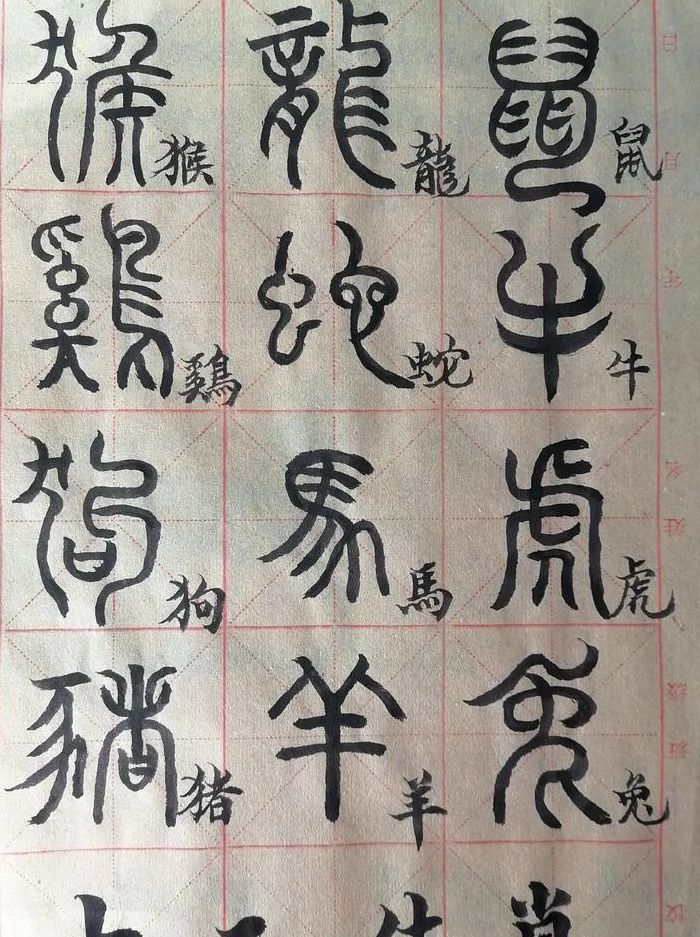 鼠 鼠
牛 牛
虎 虎
兔 兔
龍 龍
蛇 蛇
馬 馬
羊 羊
猴 猴
鷄 鷄
狗 狗
豬 猪